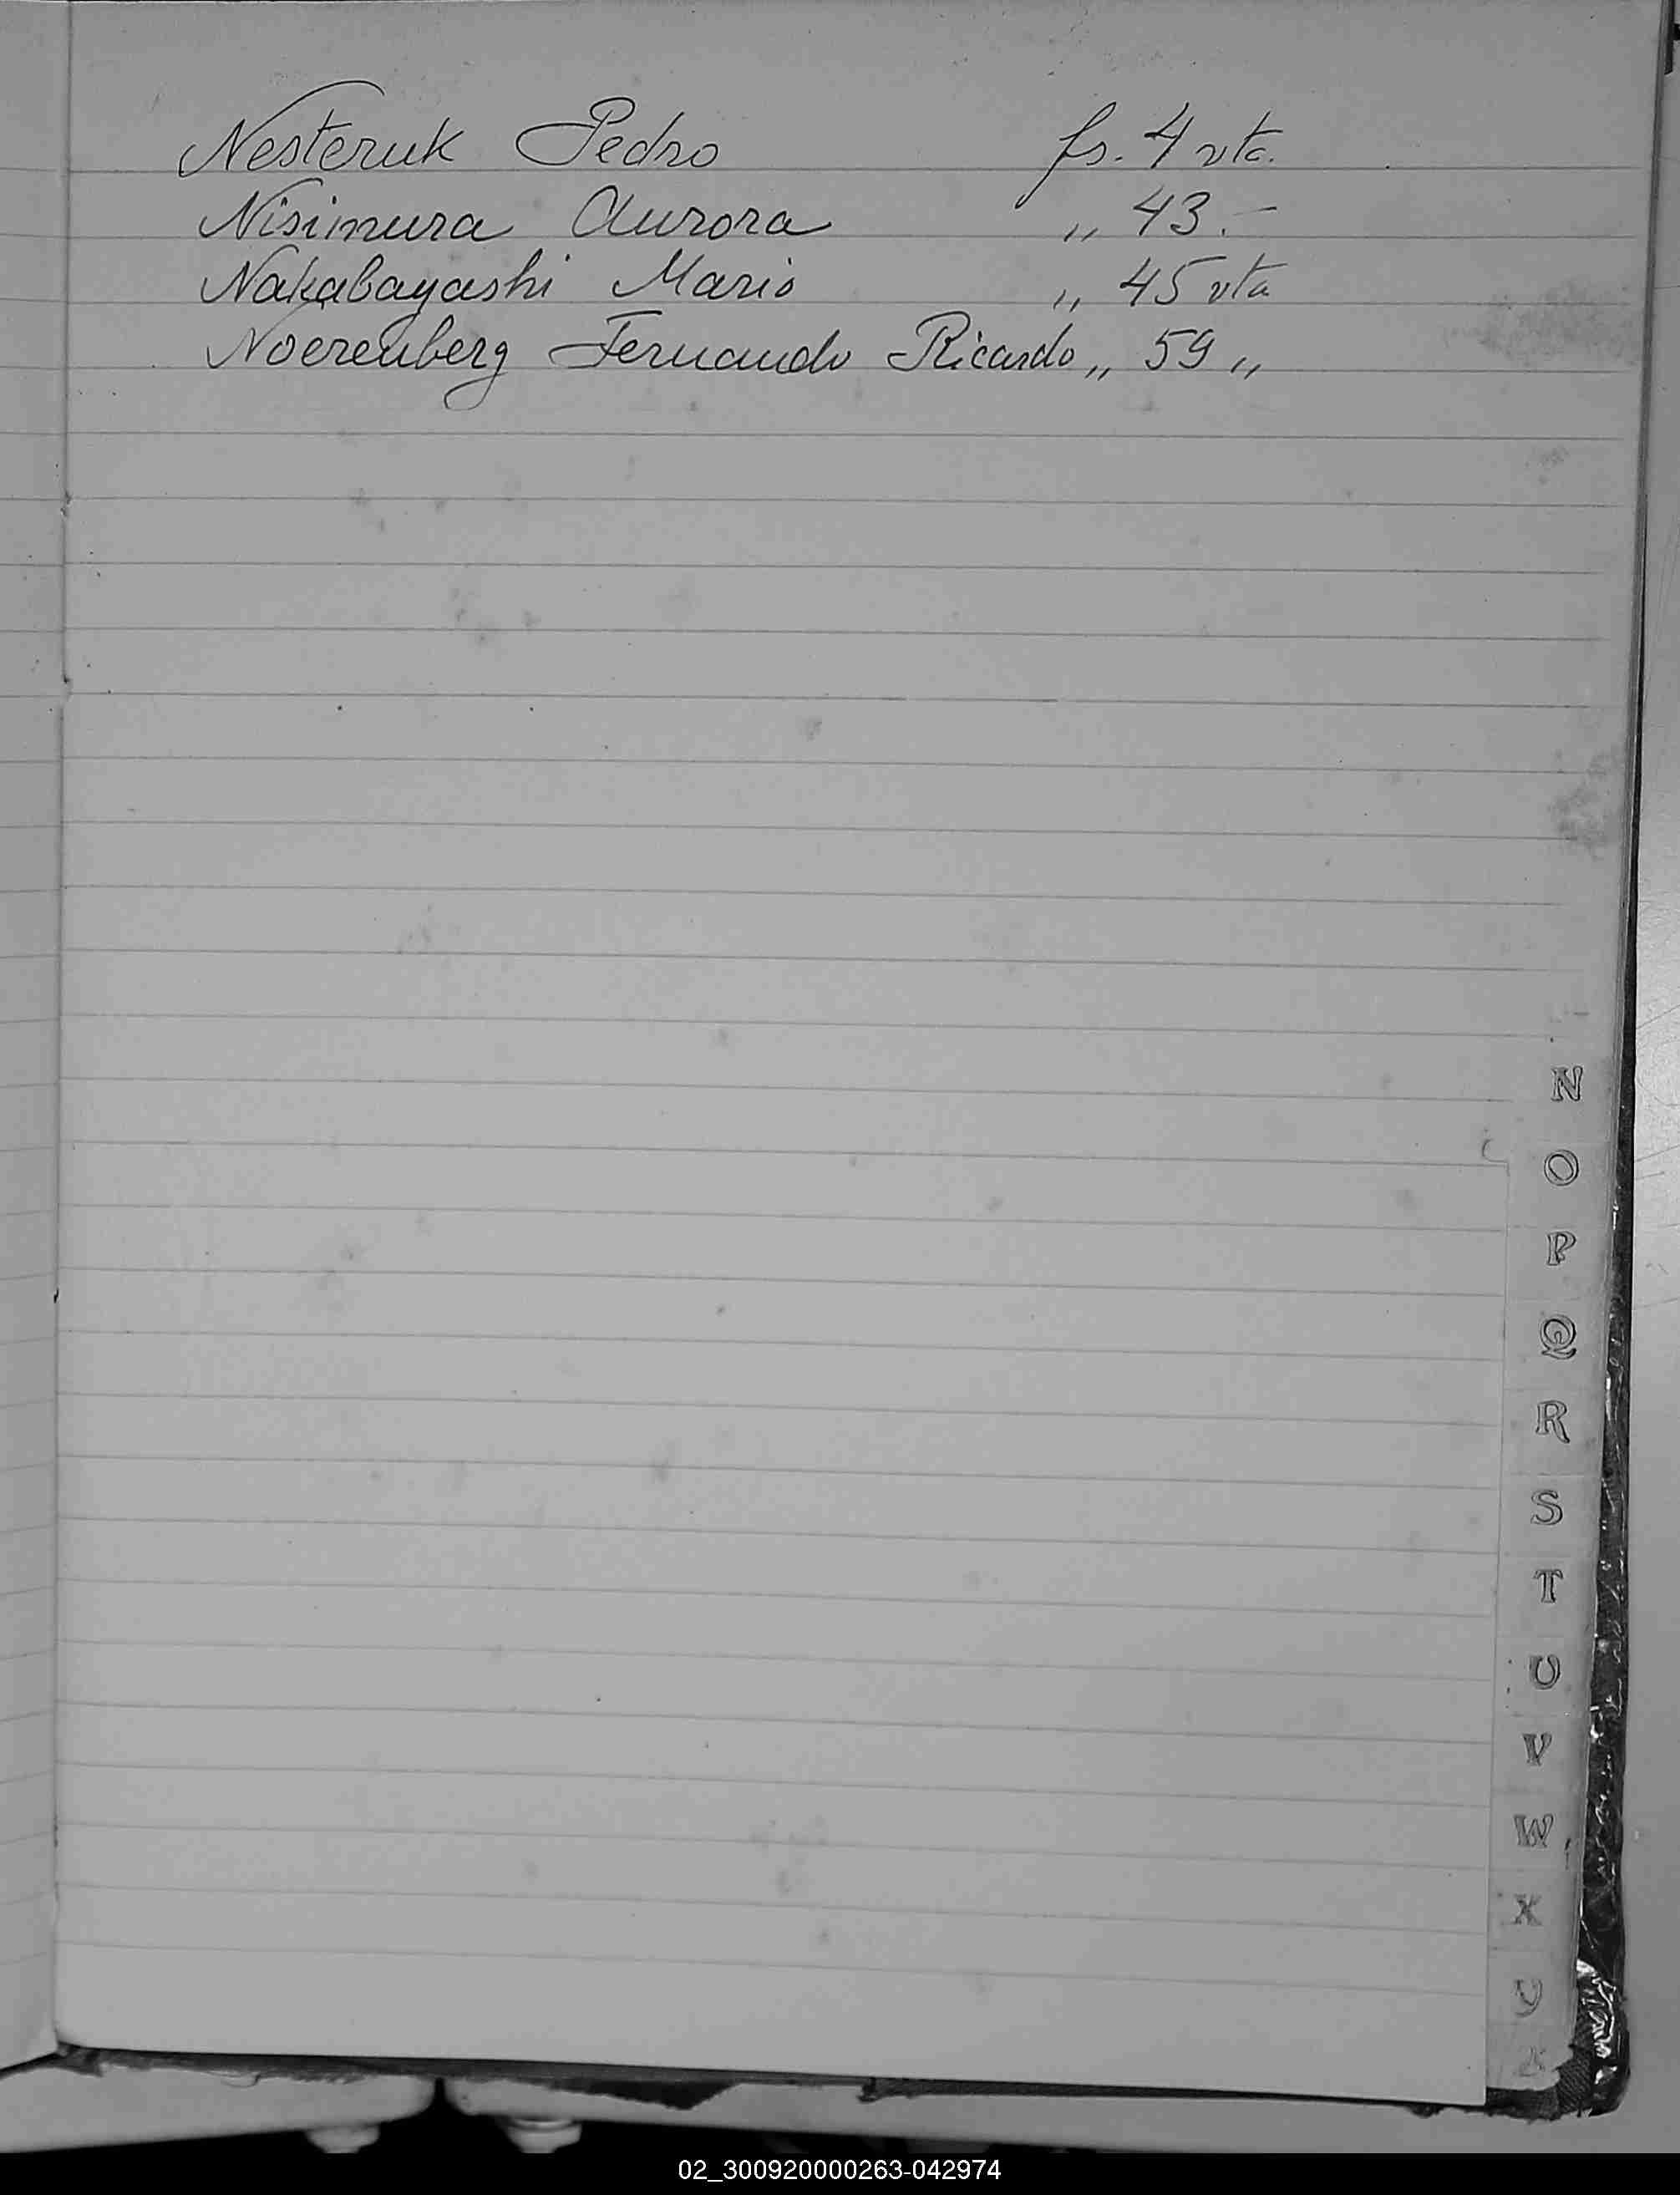 Nesteruk Pedro fs. 4 vta.
Nisimura Aurora „ 43.—
Nakabayashi Mario „ 45 vta
Noerenberg Fernando Ricardo „ 59 „
N
O
P
Q
R
S
T
U
V
W
X
Y
Z
02_300920000263-042974